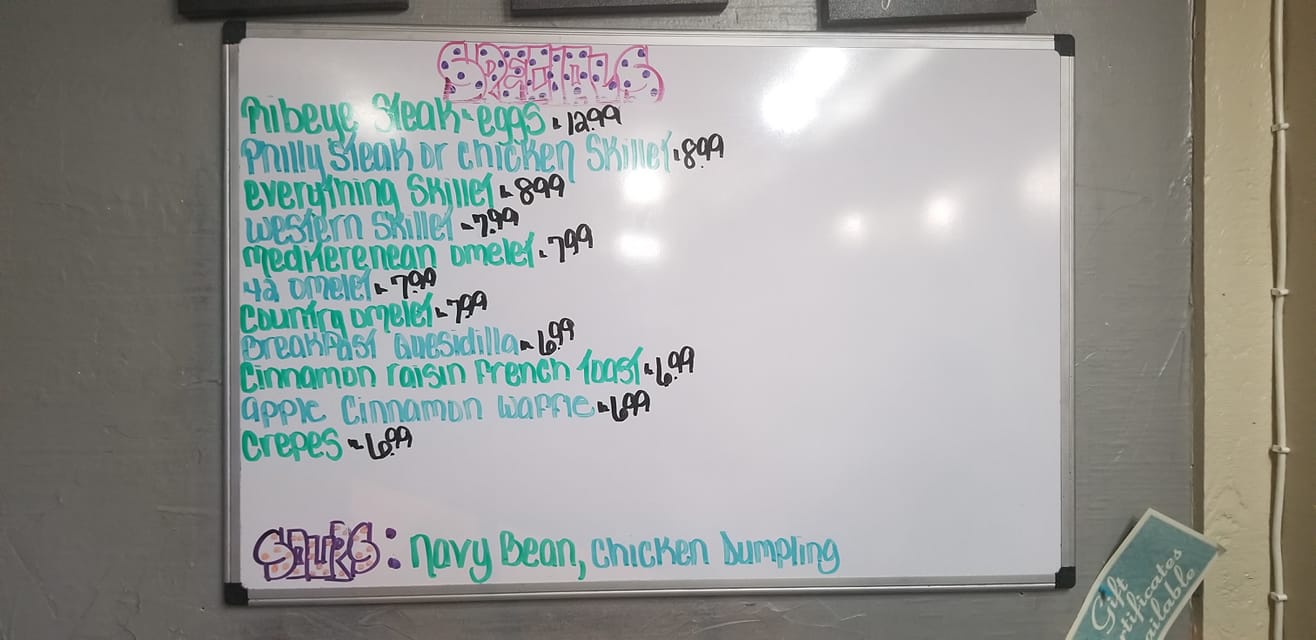 SPECIALS
Ribeye Steak & eggs - 12.99
Philly Steak or Chicken Skillet - 8.99
everything Skillet - 8.99
Western Skillet - 7.99
mediterenean omelet - 7.99
42 omelet - 7.99
Country omelet - 7.99
Breakfast Quesidilla - 6.99
Cinnamon raisin French toast - 6.99
apple Cinnamon waffle - 6.99
Crepes - 6.99
SOUPS: Navy Bean, Chicken Dumpling
Gift